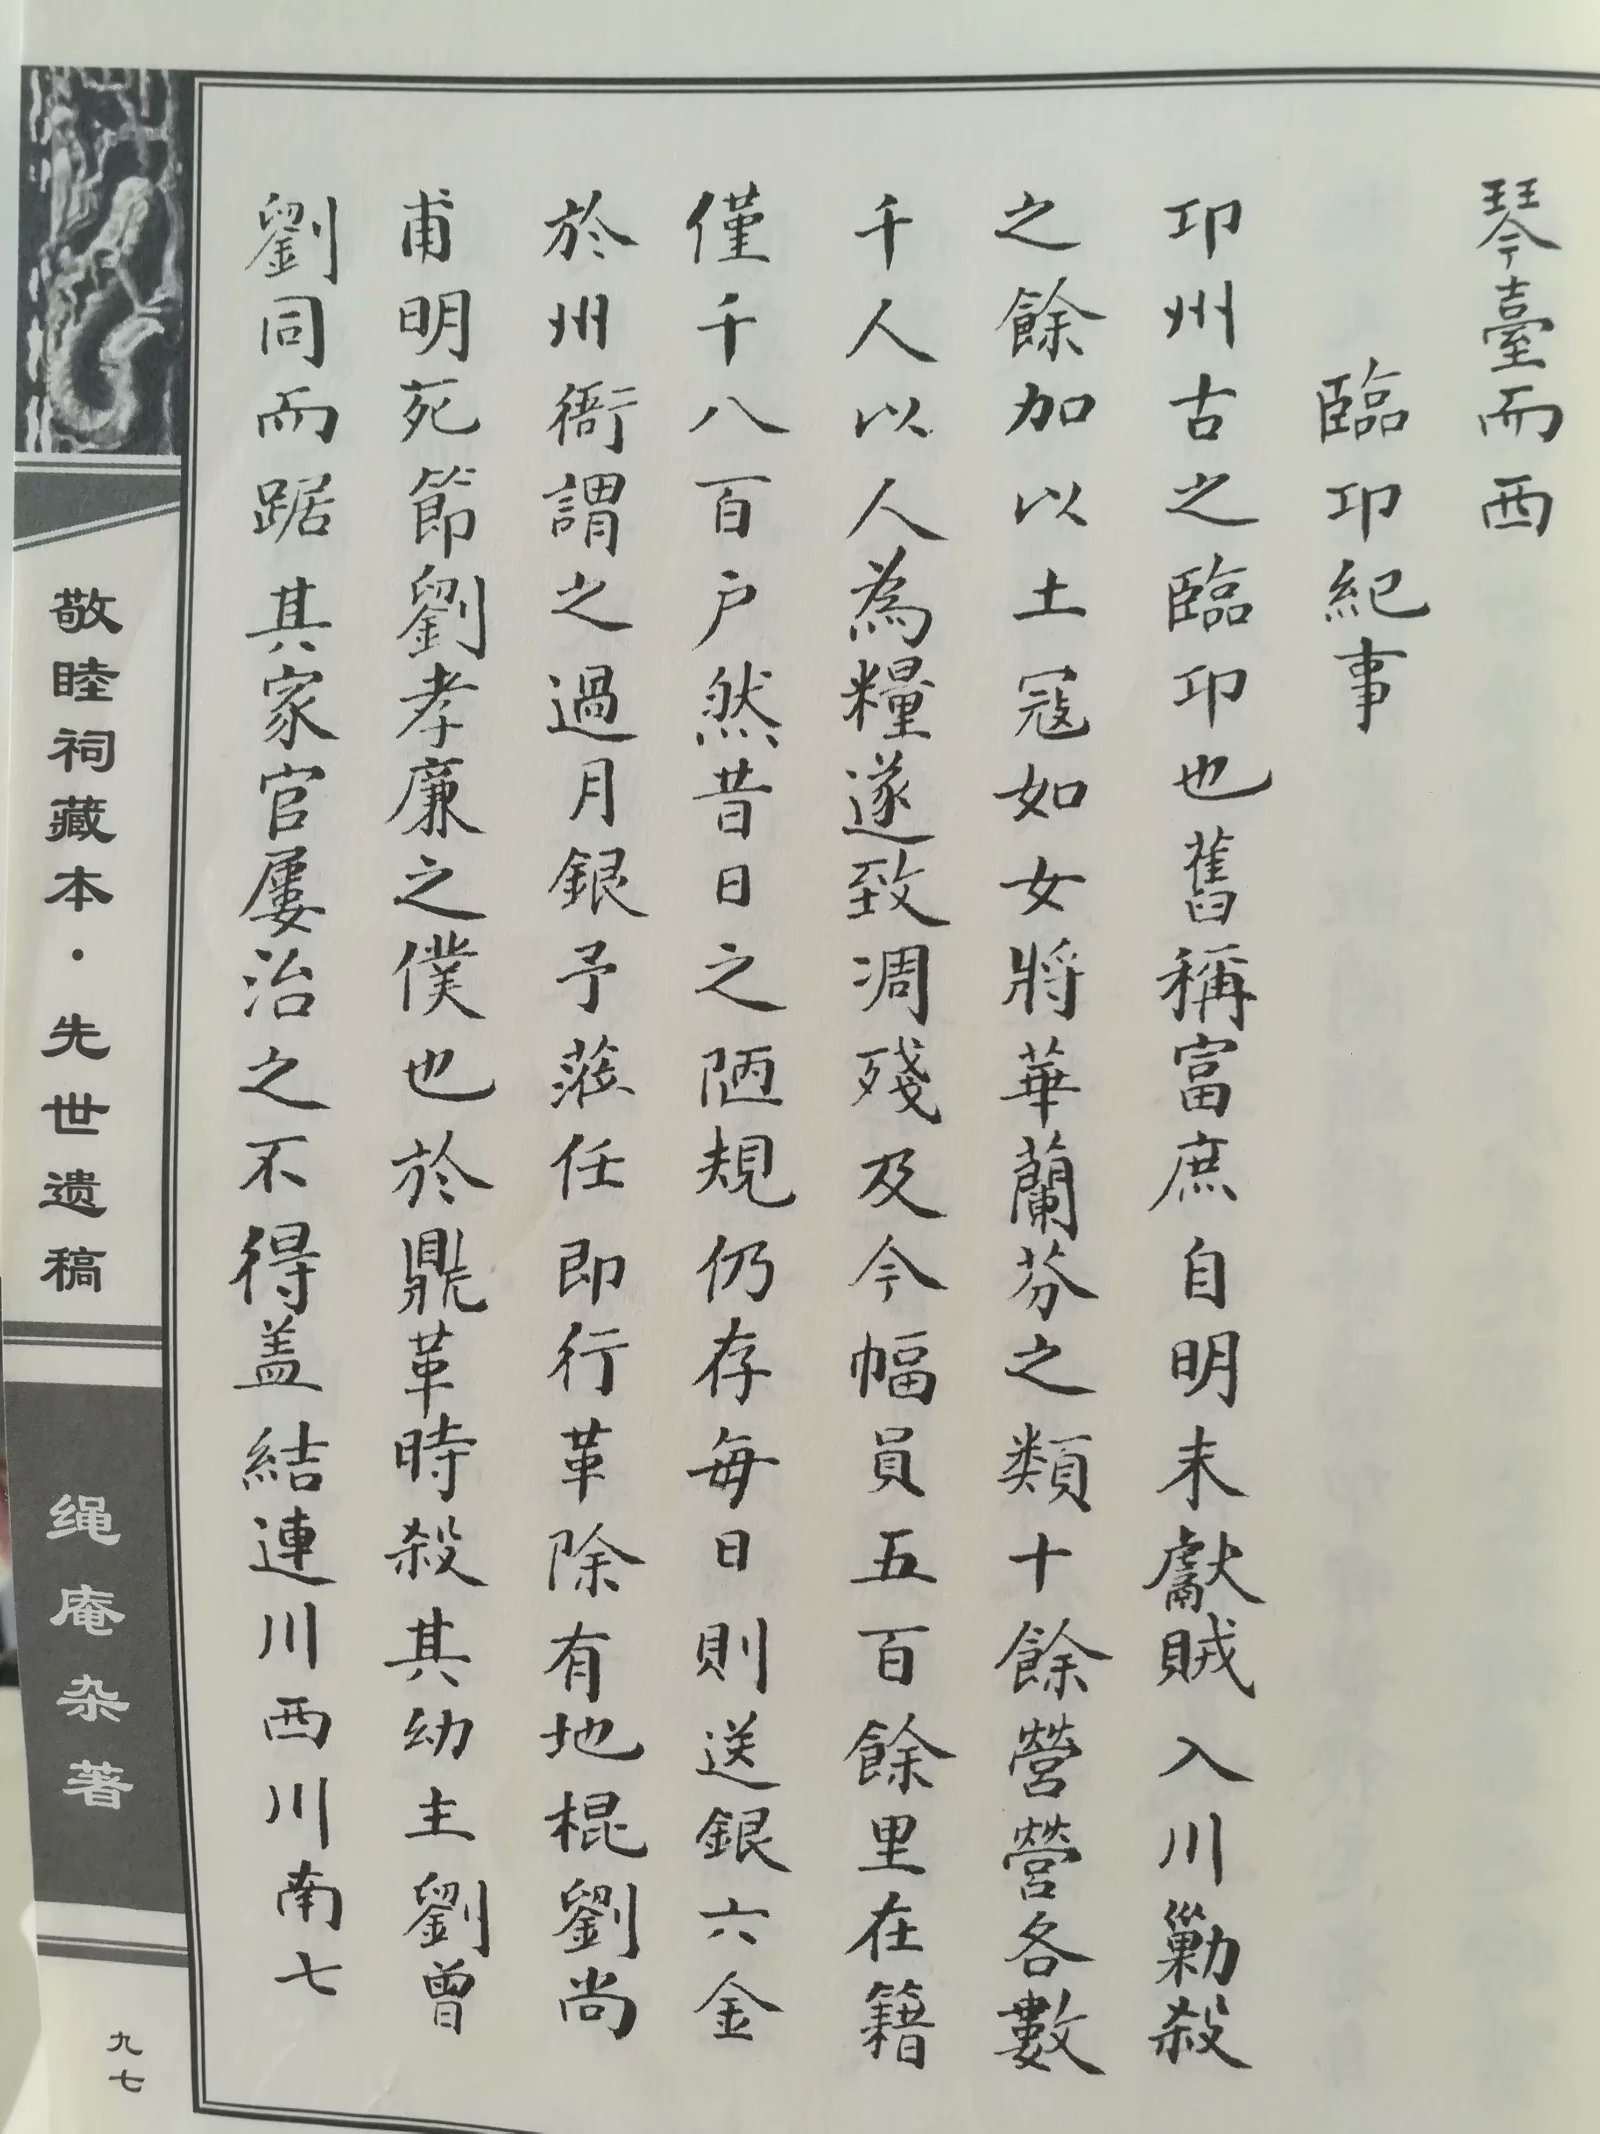 琴臺而西
臨卭紀事
卭州古之臨卭也舊稱富庶自明末獻賊入川勦殺
之餘加以土寇如女將華蘭芬之類十餘營營各數
千人以人為糧遂致凋殘及今幅員五百餘里在籍
僅千八百户然昔日之陋規仍存每日則送銀六金
於州衙謂之過月銀予蒞任即行革除有地棍劉尚
甫明死節劉孝廉之僕也於鼎革時殺其幼主劉曾
劉同而踞其家官屢治之不得盖結連川西川南七
敬睦祠藏本·先世遗稿
绳庵杂著
九七